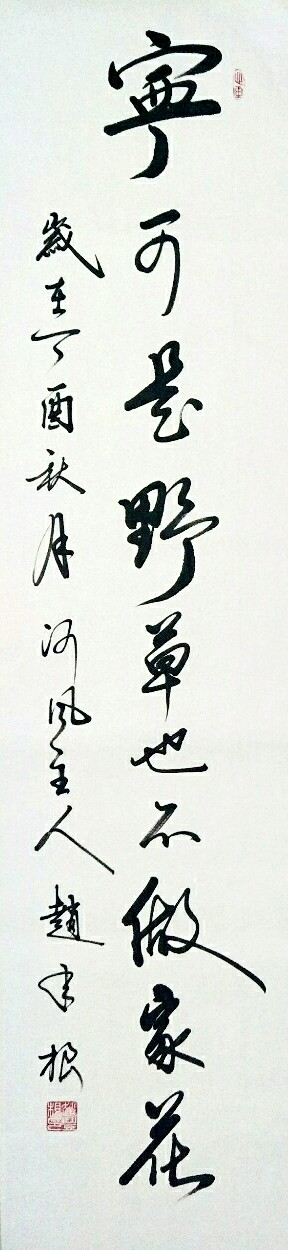 寧可是野草也不做家花
歲在丁酉秋月河風主人趙年根